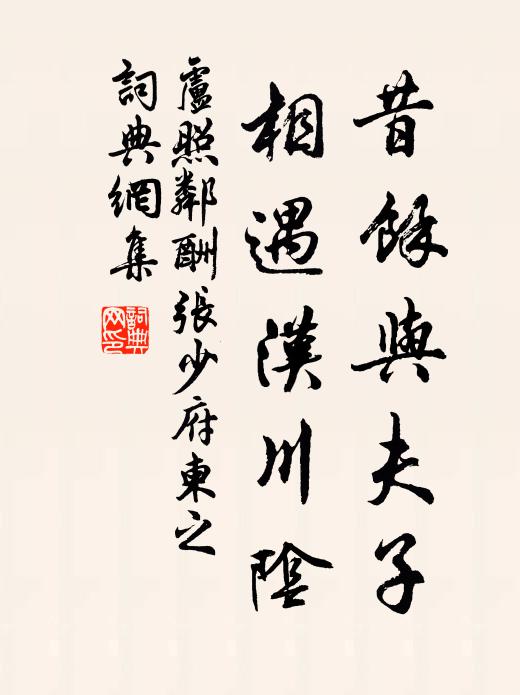 昔餘與夫子
相遇漢川陰
盧照鄰酬張少府東之
詞典網集
詞典网印